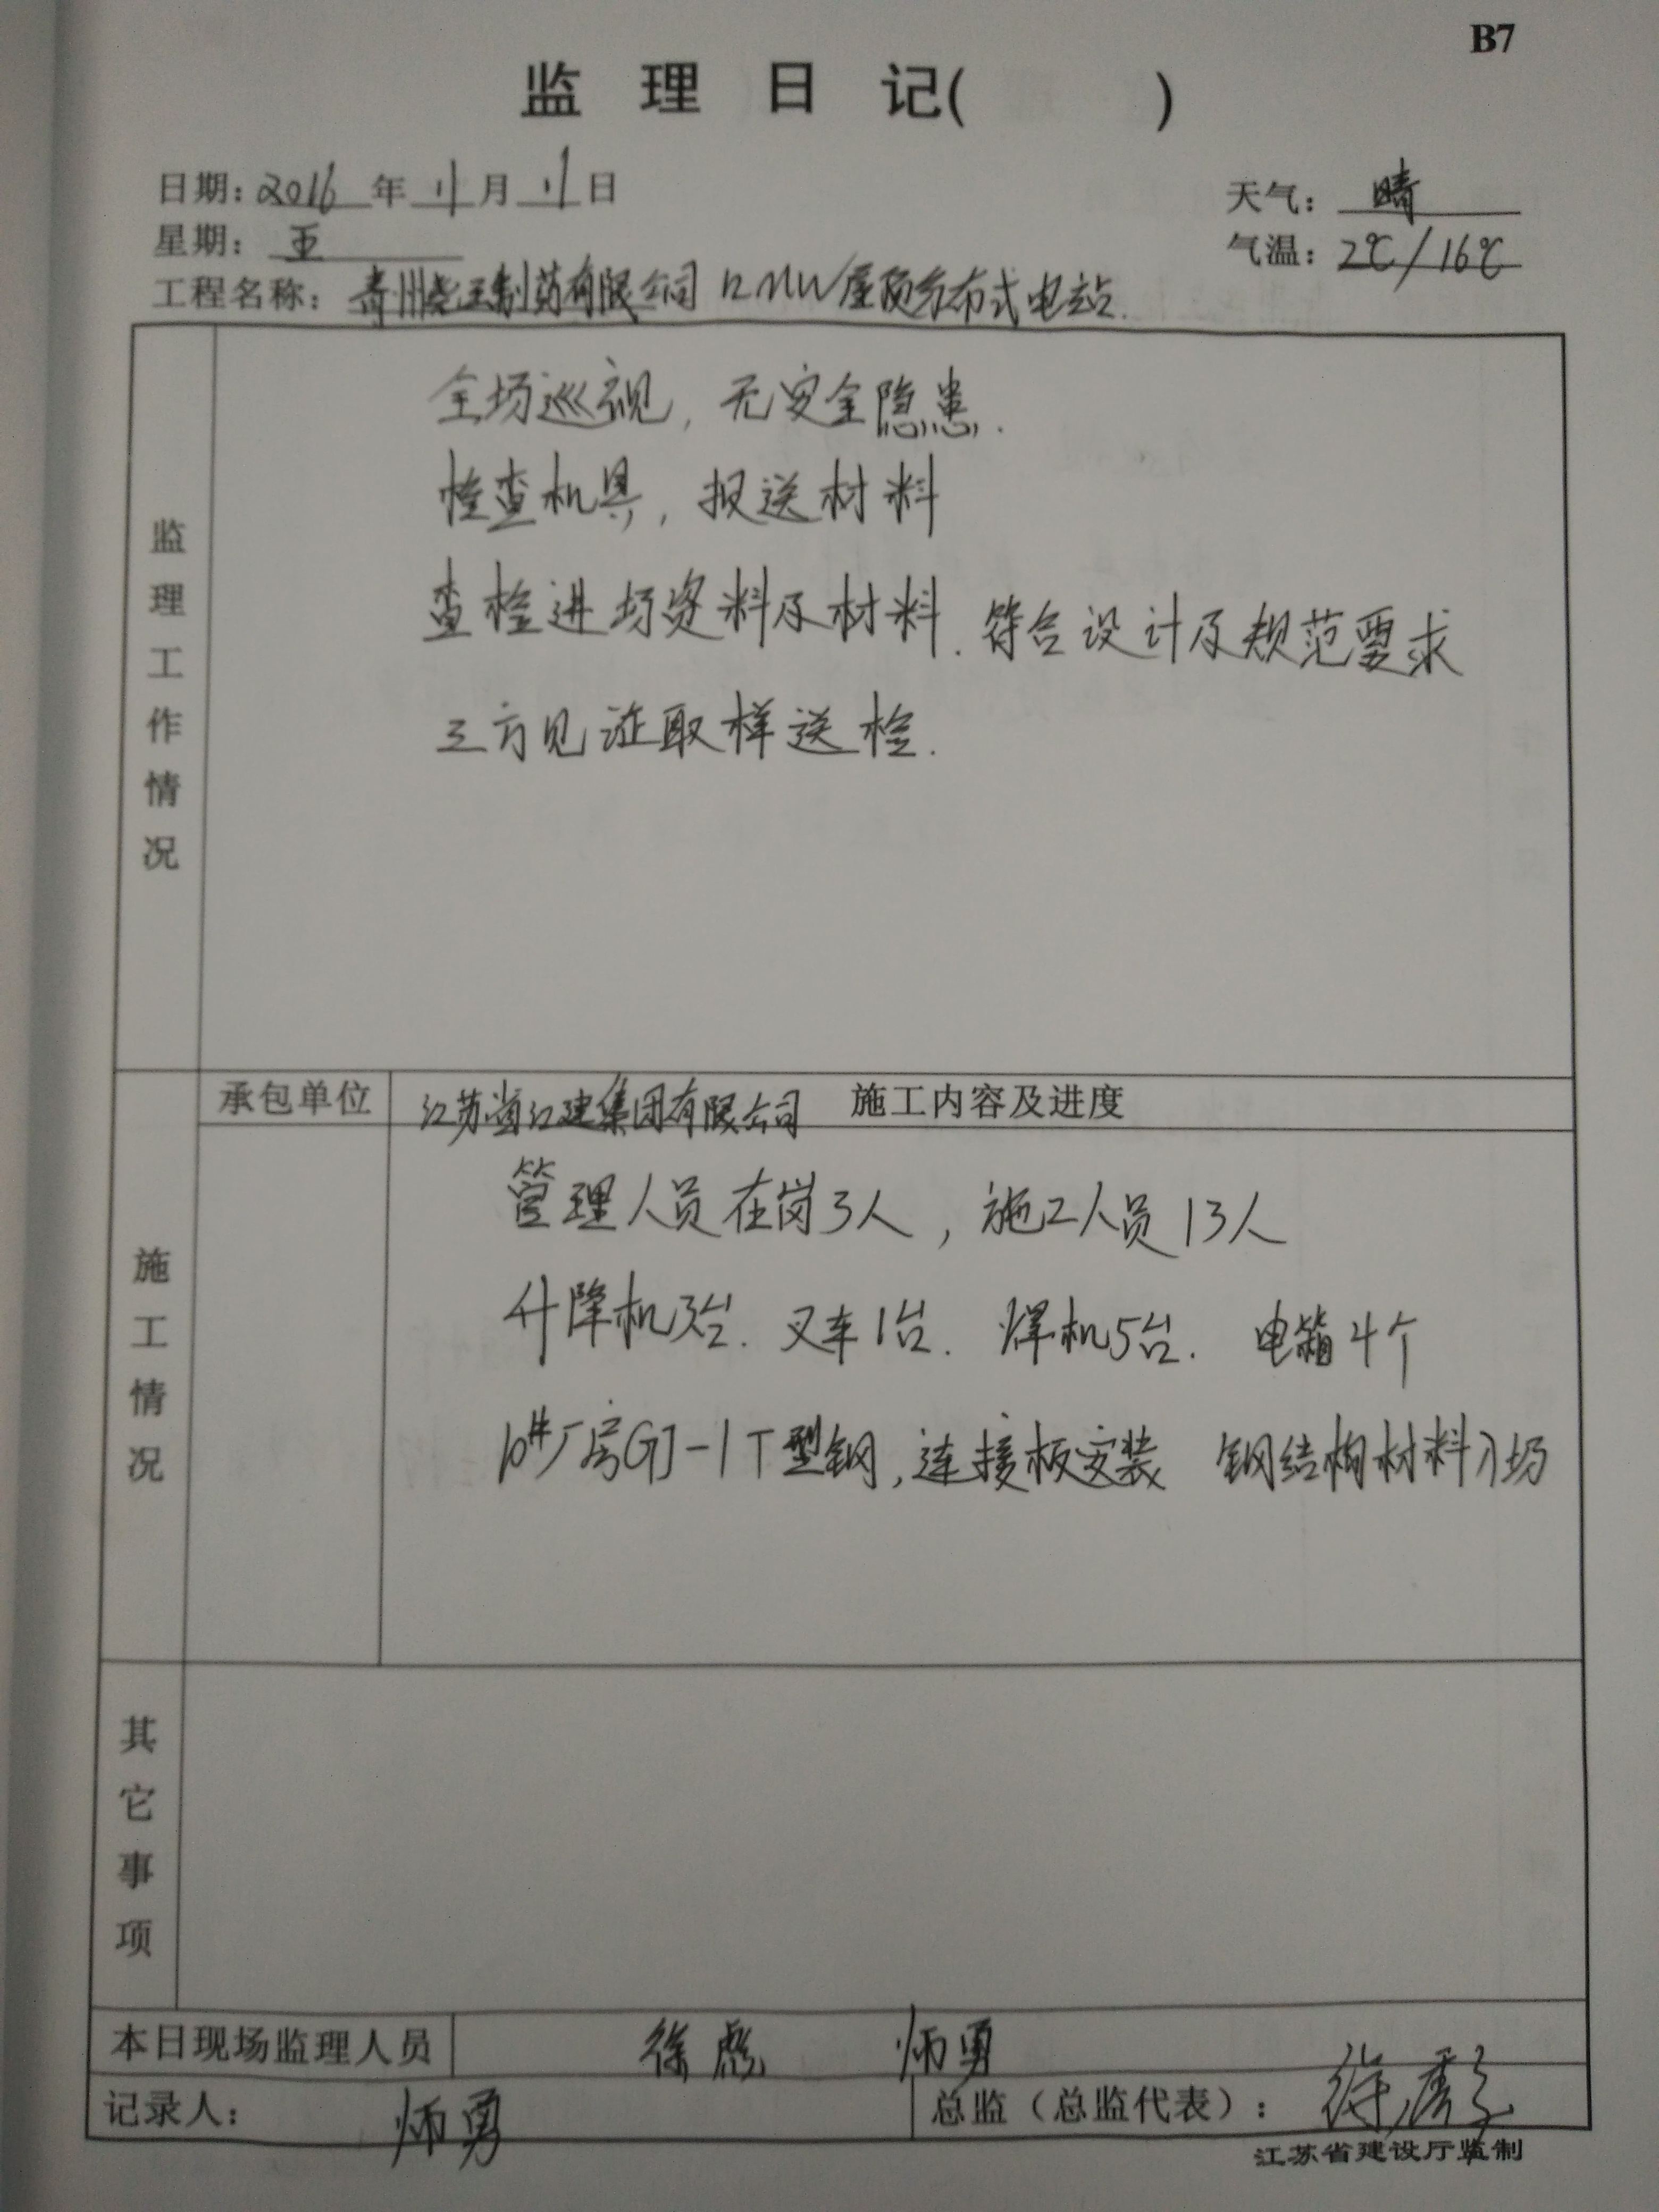 B7
监理日记( )
日期：2016年11月11日
天气：晴
星期：五
气温：2℃/16℃
工程名称：青州尧王制药有限公司12MW屋顶分布式电站.
监理工作情况
全场巡视，无安全隐患.
检查机具，报送材料
查检进场资料及材料.符合设计及规范要求
三方见证取样送检.
承包单位
江苏省江建集团有限公司 施工内容及进度
施工情况
管理人员在岗3人，施工人员13人
升降机3台.叉车1台.焊机5台.电箱4个
10#厂房GJ-1T型钢,连接板安装 钢结构材料入场
其它事项
本日现场监理人员 徐彪 师勇
记录人：师勇
总监（总监代表）：徐彪
江苏省建设厅监制